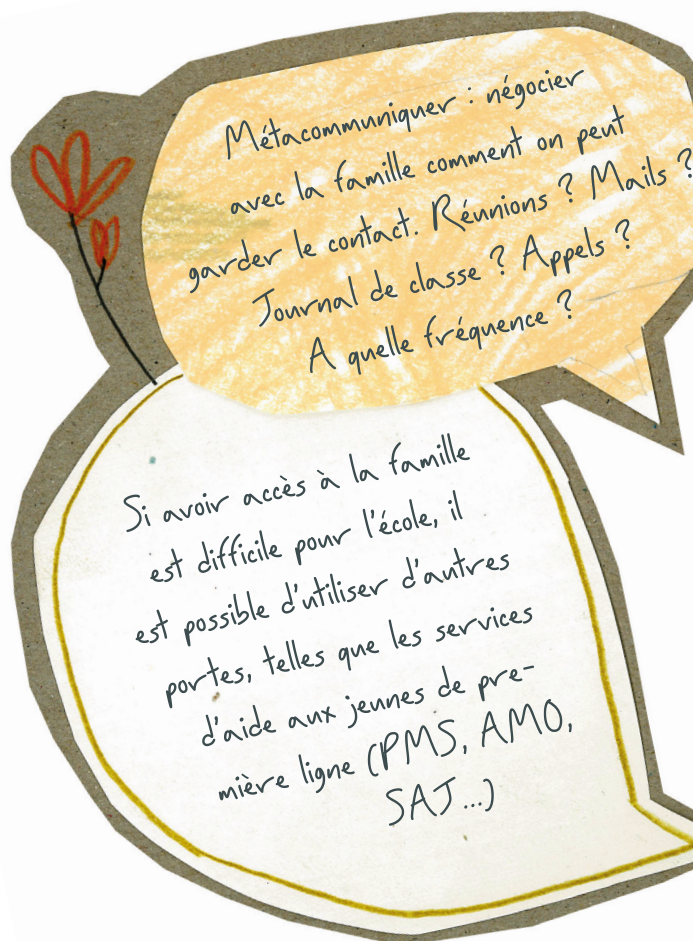 Métacommuniquer : négocier
avec la famille comment on peut
garder le contact. Réunions ? Mails ?
Journal de classe ? Appels ?
A quelle fréquence ?
Si avoir accès à la famille
est difficile pour l'école, il
est possible d'utiliser d'autres
portes, telles que les services
d'aide aux jeunes de pre-
mière ligne (PMS, AMO,
SAJ...)